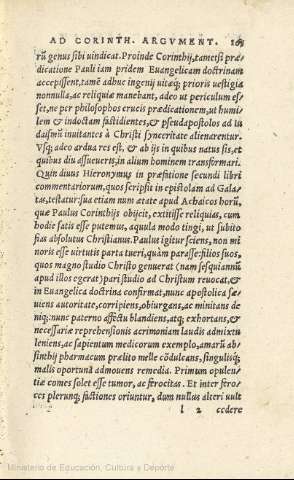 AD CORINTH. ARGVMENT. 163
rũ genus sibi uindicat. Proinde Corinthij, tametsi præ
dicatione Pauli iam pridem Euangelicam doctrinam
accepissent, tamẽ adhuc ingenij uitæq; prioris uestigia
nonnulla, ac reliquiæ manebant, adeo ut periculum es
set, ne per philosophos crucis prædicationem, ut humi
lem & indoctam fastidientes, & pseudapostolos ad Iu
daismũ inuitantes à Christi synceritate alienarentur.
Vsq; adeo ardua res est, & ab ijs in quibus natus sis, et
quibus diu assueueris, in alium hominem transformari.
Quin diuus Hieronymus in præfatione secundi libri
commentariorum, quos scripsit in epistolam ad Gala-
tas, testatur sua etiam num ætate apud Achaicos horũ,
quæ Paulus Corinthijs obijcit, extitisse reliquias, cum
hodie satis esse putemus, aquula modo tingi, ut subito
fias absolutus Christianus. Paulus igitur sciens, non mi
noris esse uirtutis parta tueri, quàm parasse: filios suos,
quos magno studio Christo genuerat (nam sesquiannũ
apud illos egerat) pari studio ad Christum reuocat, &
in Euangelica doctrina confirmat, nunc apostolica sæ-
uiens autoritate, corripiens, obiurgans, ac minitans de
niq;: nunc paterno affectu blandiens, atq; exhortans, &
necessariæ reprehensionis acrimoniam laudis admixtu
leniens, ac sapientum medicorum exemplo, amarũ ab-
sinthij pharmacum prælito melle cõdulcans, singulisq;
malis oportuna admouens remedia. Primum opulen
tiæ comes solet esse tumor, ac ferocitas. Et inter fero-
ces plerunq; factiones oriuntur, dum nullus alteri uult
l 2 cedere
Ministerio de Educación, Cultura y Deporte